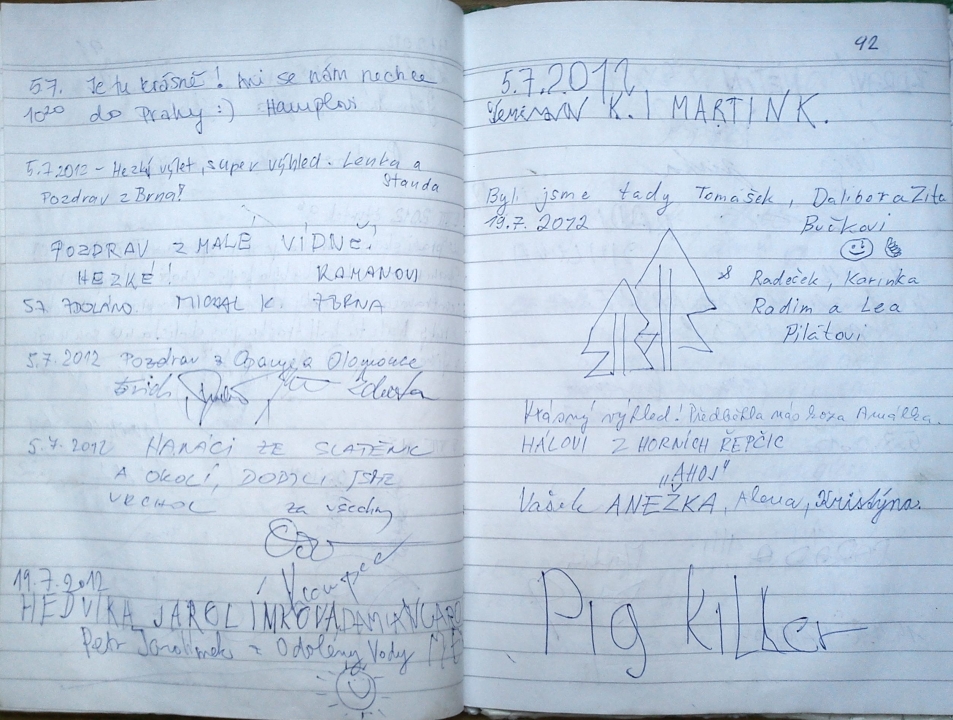 5.7. Je tu krásně! Ani se nám nechce
10²⁰ do Prahy :) Hamplovi
5.7.2012 - Hezký výlet, super výhled. Lenka a
Standa
Pozdrav z Brna!
POZDRAV Z MALÉ VÍDNĚ!
HEZKÉ! RAMANOVI
5.7. MICHAL K. Z BRNA
5.7.2012 Pozdrav z Opavy a Olomouce
Zdeňka
5.7.2012 HANÁCI ZE SLATĚNIC
A OKOLÍ, DOBILI JSME
VRCHOL za všechny
19.7.2012
HEDVIKA JAROLÍMKOVÁ
Petr Jarolímek z Odoleny Vody
92
5.7.2012
K. I MARTIN K.
Byl jsme tady Tomášek, Dalibor a Zita
19.7.2012 Bučkovi
Radeček, Karinka
Radim a Lea
Pilátovi
Krásný výhled! Předběhla nás koza Amálka.
HÁLOVI Z HORNÍCH ŘEPČIC
„AHOJ"
Vašek ANEŽKA, Alena, Kristýna.
Pig Killer